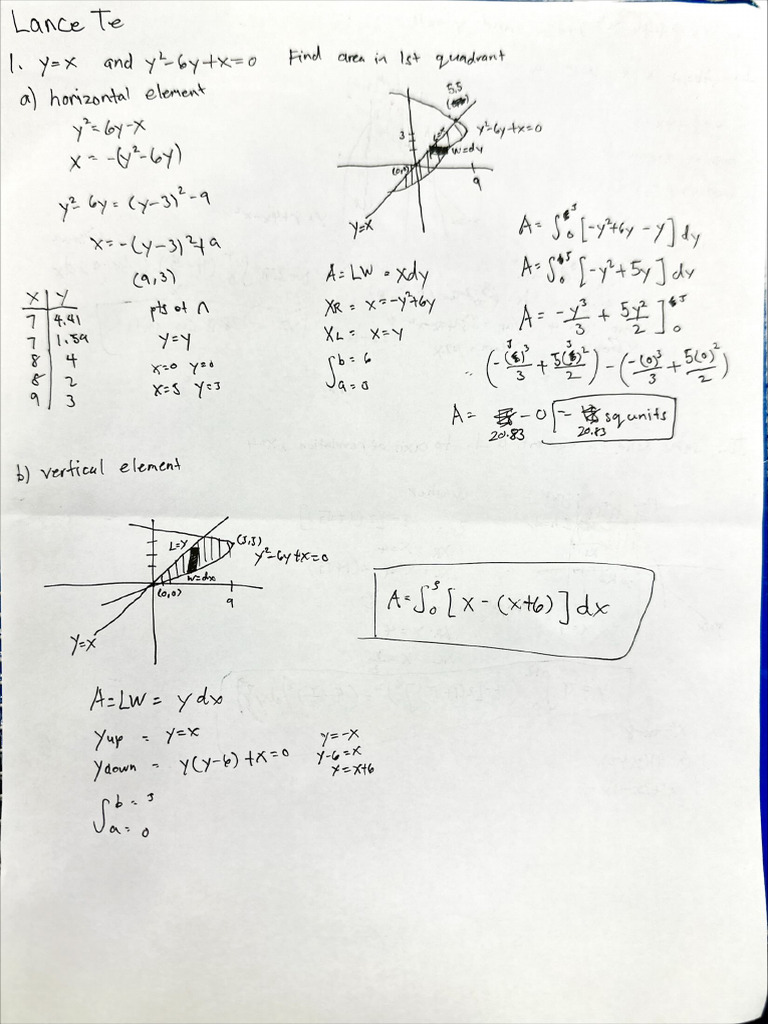 Lance Te
1. y=x and y²-6y+x=0 Find area in 1st quadrant
a) horizontal element
y²=6y-x
x=-(y²-6y)
y²-6y=(y-3)²-9
x=-(y-3)²+9
(9,3)
x | y
7 | 4.41
7 | 1.59
8 | 4
8 | 2
9 | 3
pts of ∩
y=y
x=0 y=0
x=5 y=5
5,5
3
y²-6y+x=0
w=dy
(0,0)
9
y=x
A=LW=xdy
XR = x=-y²+6y
XL = x=y
∫ b=6
a=0
A=∫₀⁵[-y²+6y-y]dy
A=∫₀⁵[-y²+5y]dy
A=-y³/3 + 5y²/2]₀⁵
= (-(5)³/3 + 5(5)²/2) - (-(0)³/3 + 5(0)²/2)
A= 20.83 - 0 = 20.83 sq units
b) vertical element
L=y
(5,5)
y²-6y+x=0
w=dx
(0,0)
9
y=x
A=∫₀⁵[x-(x+6)]dx
A=LW= ydx
yup = y=x
ydown = y(y-6)+x=0
y=-x
y-6=x
y=x+6
∫ b=5
a=0